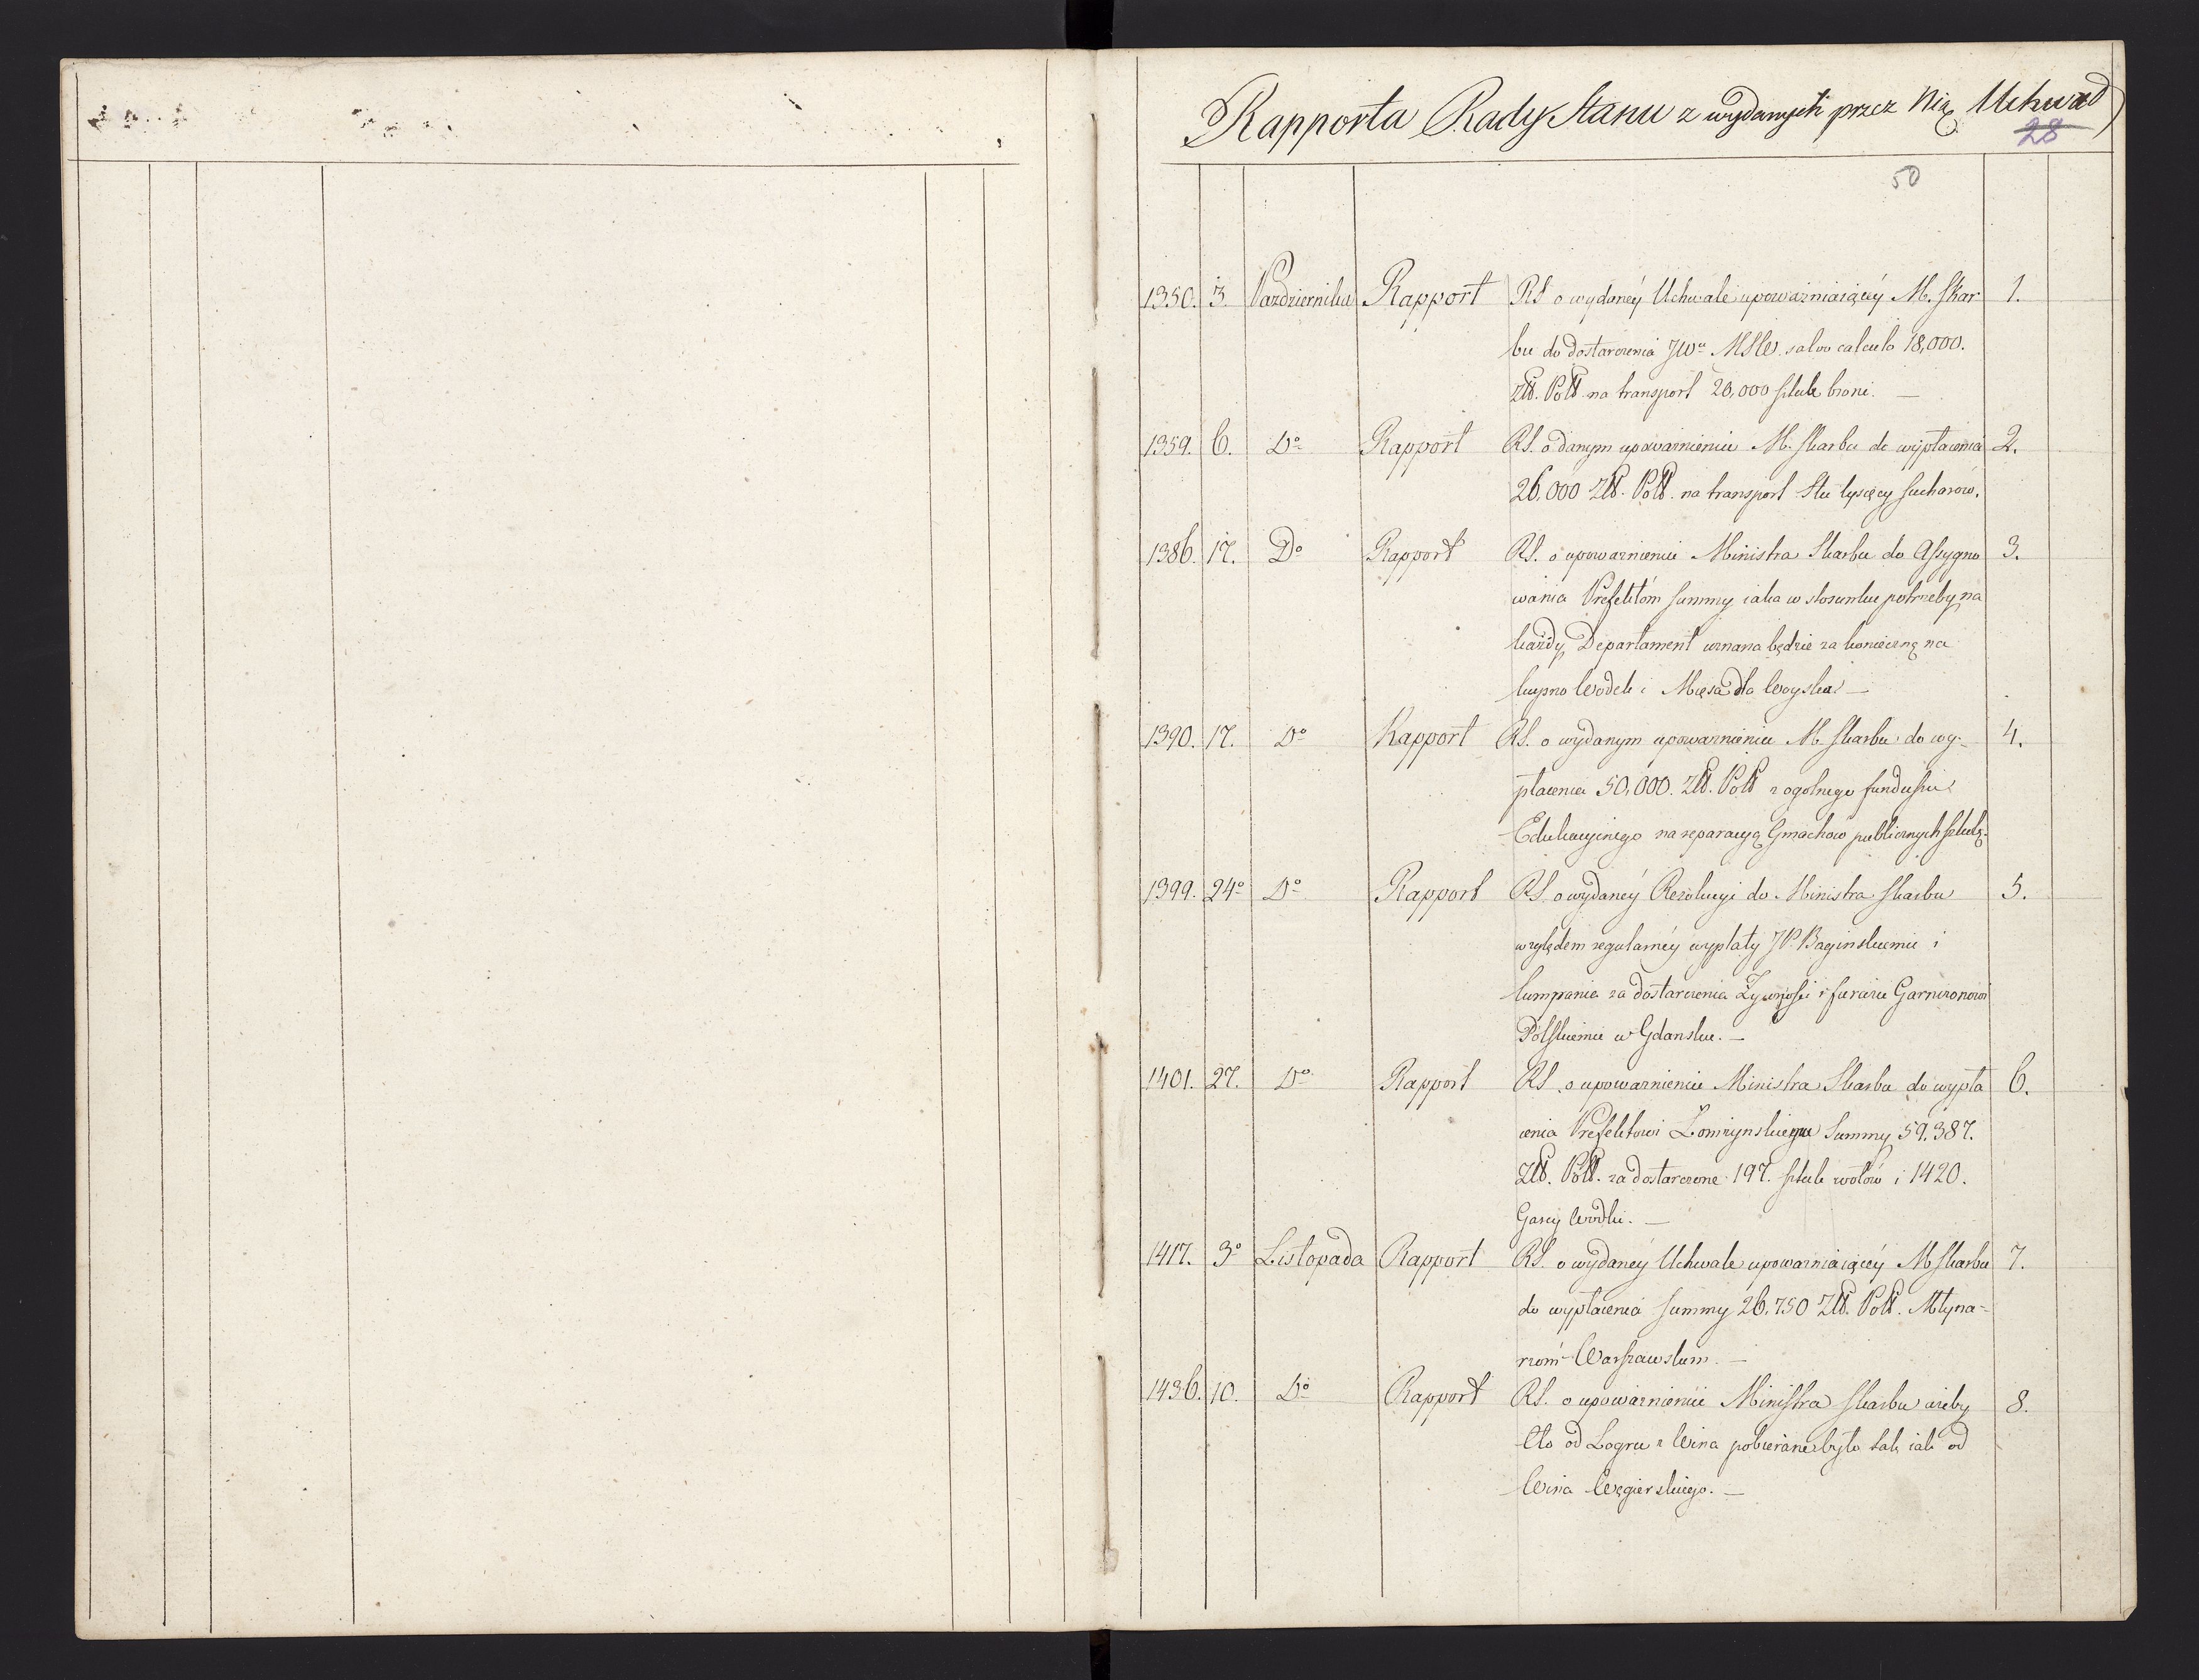 Rapporta Rady Stanu z wydanych przez Nią Uchwał
28
50
1350. 3. Pazdziernika Rapport RS o wydaney Uchwale upoważniaiącey M. Skar 1.
bu do dostarczenia JWu MSW. salvo calculo 18,000.
Złł. Poll na transport 20,000 sztuk broni. —
1359. 6. Do Rapport RS. o danym upoważnieniu M. Skarbu do wypłacenia 2.
26,000 Złł. Poll. na transport Stu tysięcy sucharow.
1386. 17. Do Rapport RS. o upoważnieniu Ministra Skarbu do Assygno 3.
wania Prefektóm summy iaka w stosunku potrzeby na
każdy Departament uznana będzie za konieczną na
kupno Wodek i Mięsa dla Woyska —
1390. 17. Do Rapport RS. o wydanym upoważnieniu M. Skarbu do wy- 4.
płacenia 50,000. Złł. Poll z ogolnego funduszu
Edukacyinego na reparacyą Gmachow publicznych
1399. 24o Do Rapport RS. o wydaney Rezolucyi do Ministra Skarbu 5.
względem regularney wypłaty JP. Baginskiemu i
kumpania za dostarczenia Żywności i furażu Garnizonowi
Polskiemu w Gdansku. —
1401. 27. Do Rapport RS. o upoważnieniu Ministra Skarbu do wypła 6.
cenia Prefektowi Łomżynskiemu Summy 59.387.
Złł. Poll. za dostarczone 197. sztuk wołów i 1420.
Garcy Wodki. —
1417. 3o Listopada Rapport RS. o wydaney Uchwale upoważniaiącey M Skarbu 7.
do wypłacenia summy 26,750 Złł. Poll. Młyna-
rzom Warszawskim. —
1436. 10. Do Rapport RS. o upoważnieniu Ministra Skarbu ażeby 8.
Cło od Lagru z Wina pobierane było tak iak od
Wina Węgierskiego. —